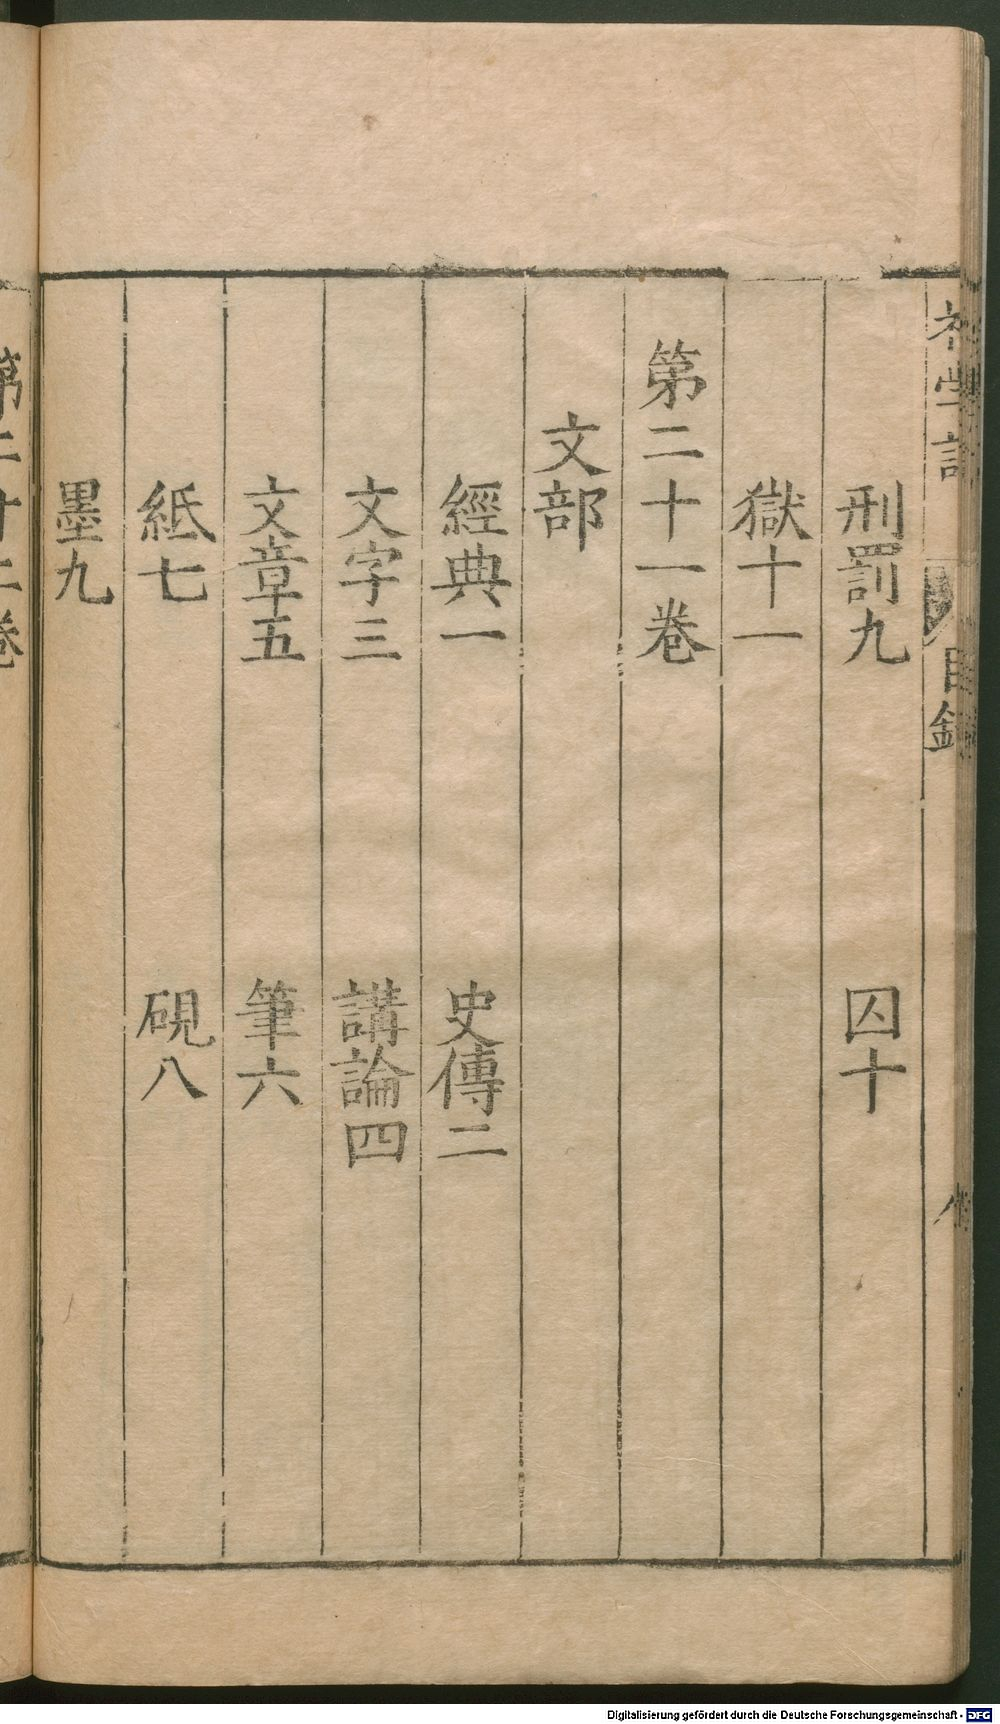 初學記
目錄
刑罰九 囚十
獄十一
第二十一卷
文部
經典一 史傳二
文字三 講論四
文章五 筆六
紙七 硯八
墨九
第二十二卷
Digitalisierung gefördert durch die Deutsche Forschungsgemeinschaft - DFG